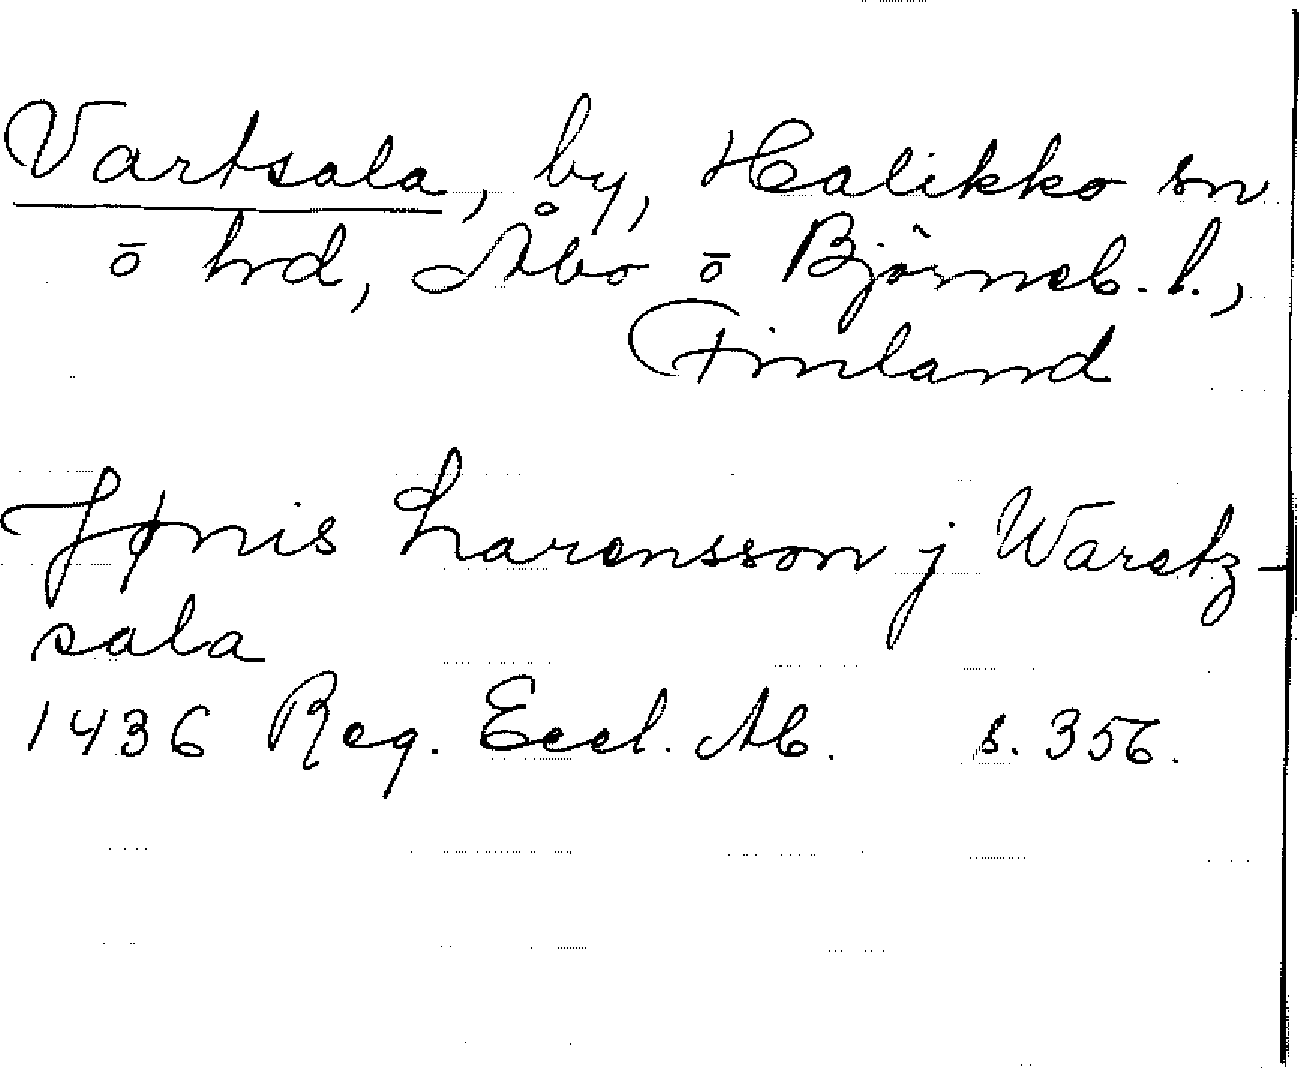 Vartsala, by, Halikko sn
ō hrd, Åbo ō Björneb. l.,
Finland
Jønis Larensson j Waretz-
sala
1436 Reg. Eccl. Ab. s. 356.